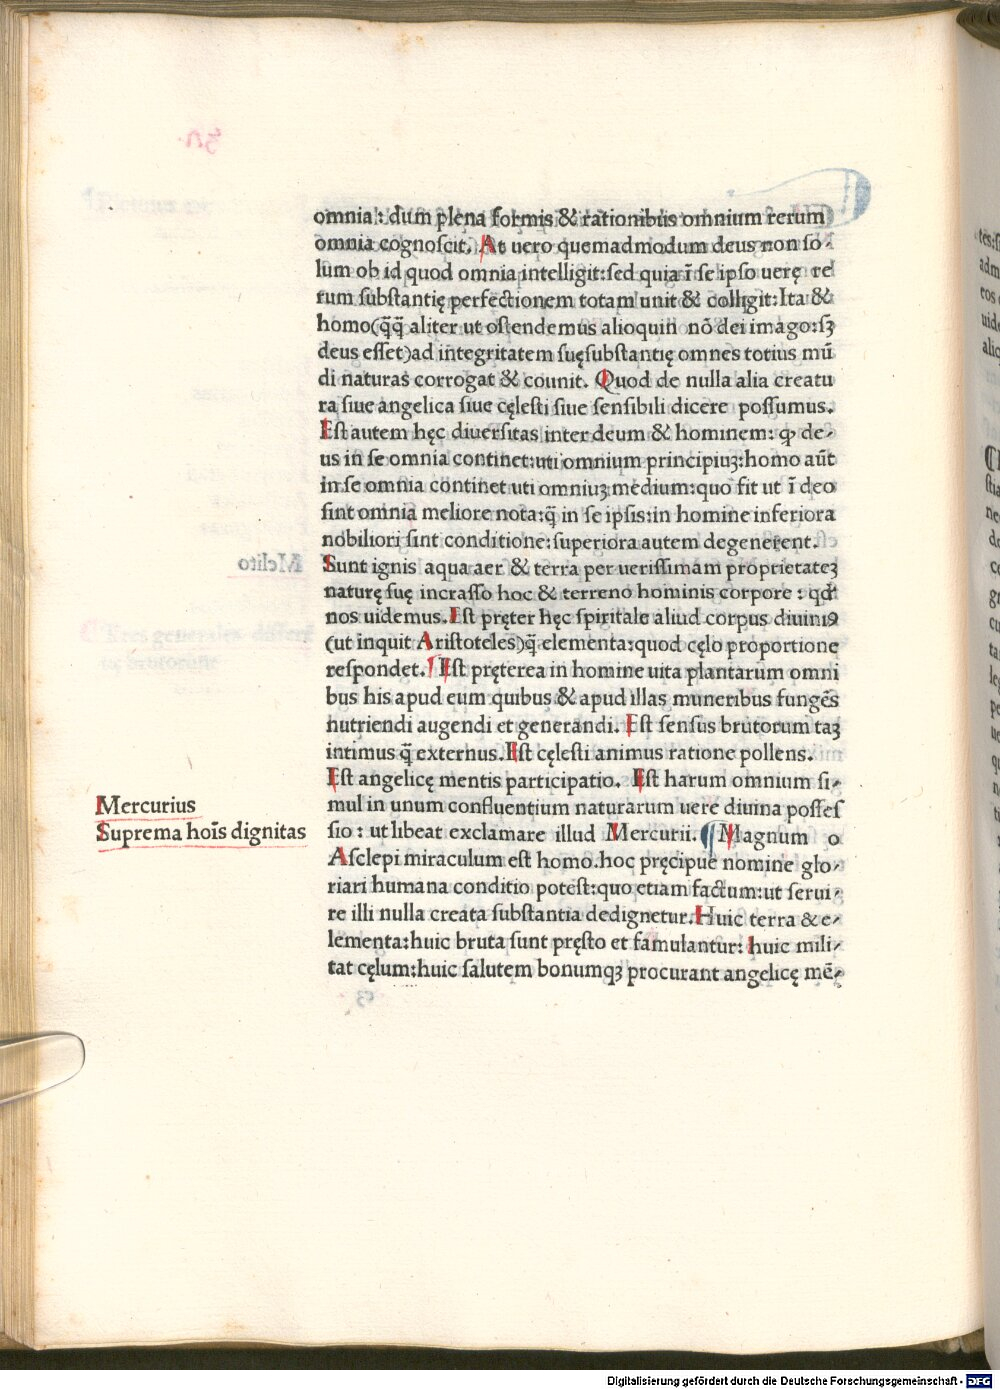 omnia: dum plena formis & rationibus omnium rerum
omnia cognoſcit. At uero quemadmodum deus non ſo-
lum ob id quod omnia intelligit:ſed quia ī ſe ipſo uerę re
rum ſubſtantię perfectionem totam unit & colligit: Ita &
homo(q̄q̄ aliter ut oſtendemus alioquin nō dei imago:ſꝫ
deus eſſet)ad integritatem ſuę ſubſtantię omnes totius mū
di naturas corrogat & counit. Quod de nulla alia creatu
ra ſiue angelica ſiue cęleſti ſiue ſenſibili dicere poſſumus.
Eſt autem hęc diuerſitas inter deum & hominem: ꝙ de-
us in ſe omnia continet:uti omnium principiuꝫ:homo aūt
in ſe omnia continet uti omniuꝫ medium:quo fit ut ī deo
ſint omnia meliore nota:q̄ in ſe ipſis:in homine inferiora
nobiliori ſint conditione:ſuperiora autem degenerent.
Sunt ignis aqua aer & terra per ueriſſimam proprietateꝫ
naturę ſuę incraſſo hoc & terreno hominis corpore : qd̄
nos uidemus. Eſt pręter hęc ſpiritale aliud corpus diuiniꝰ
(ut inquit Ariſtoteles)q̄ elementa:quod cęlo proportione
reſpondet. ¶ Eſt pręterea in homine uita plantarum omni
bus his apud eum quibus & apud illas muneribus fungēs
nutriendi augendi et generandi. Eſt ſenſus brutorum taꝫ
intimus q̄ externus. Eſt cęleſti animus ratione pollens.
Eſt angelicę mentis participatio. Eſt harum omnium ſi-
mul in unum confluentium naturarum uere diuina poſſeſ
ſio : ut libeat exclamare illud Mercurii. ¶ Magnum o
Aſclepi miraculum eſt homo.hoc pręcipue nomine glo-
riari humana conditio poteſt:quo etiam factum:ut ſerui-
re illi nulla creata ſubſtantia dedignetur. Huic terra & e-
lementa:huic bruta ſunt pręſto et famulantur: huic mili-
tat cęlum:huic ſalutem bonumqꝫ procurant angelicę mē-
Mercurius
Suprema hoīs dignitas
Digitalisierung gefördert durch die Deutsche Forschungsgemeinschaft - DFG